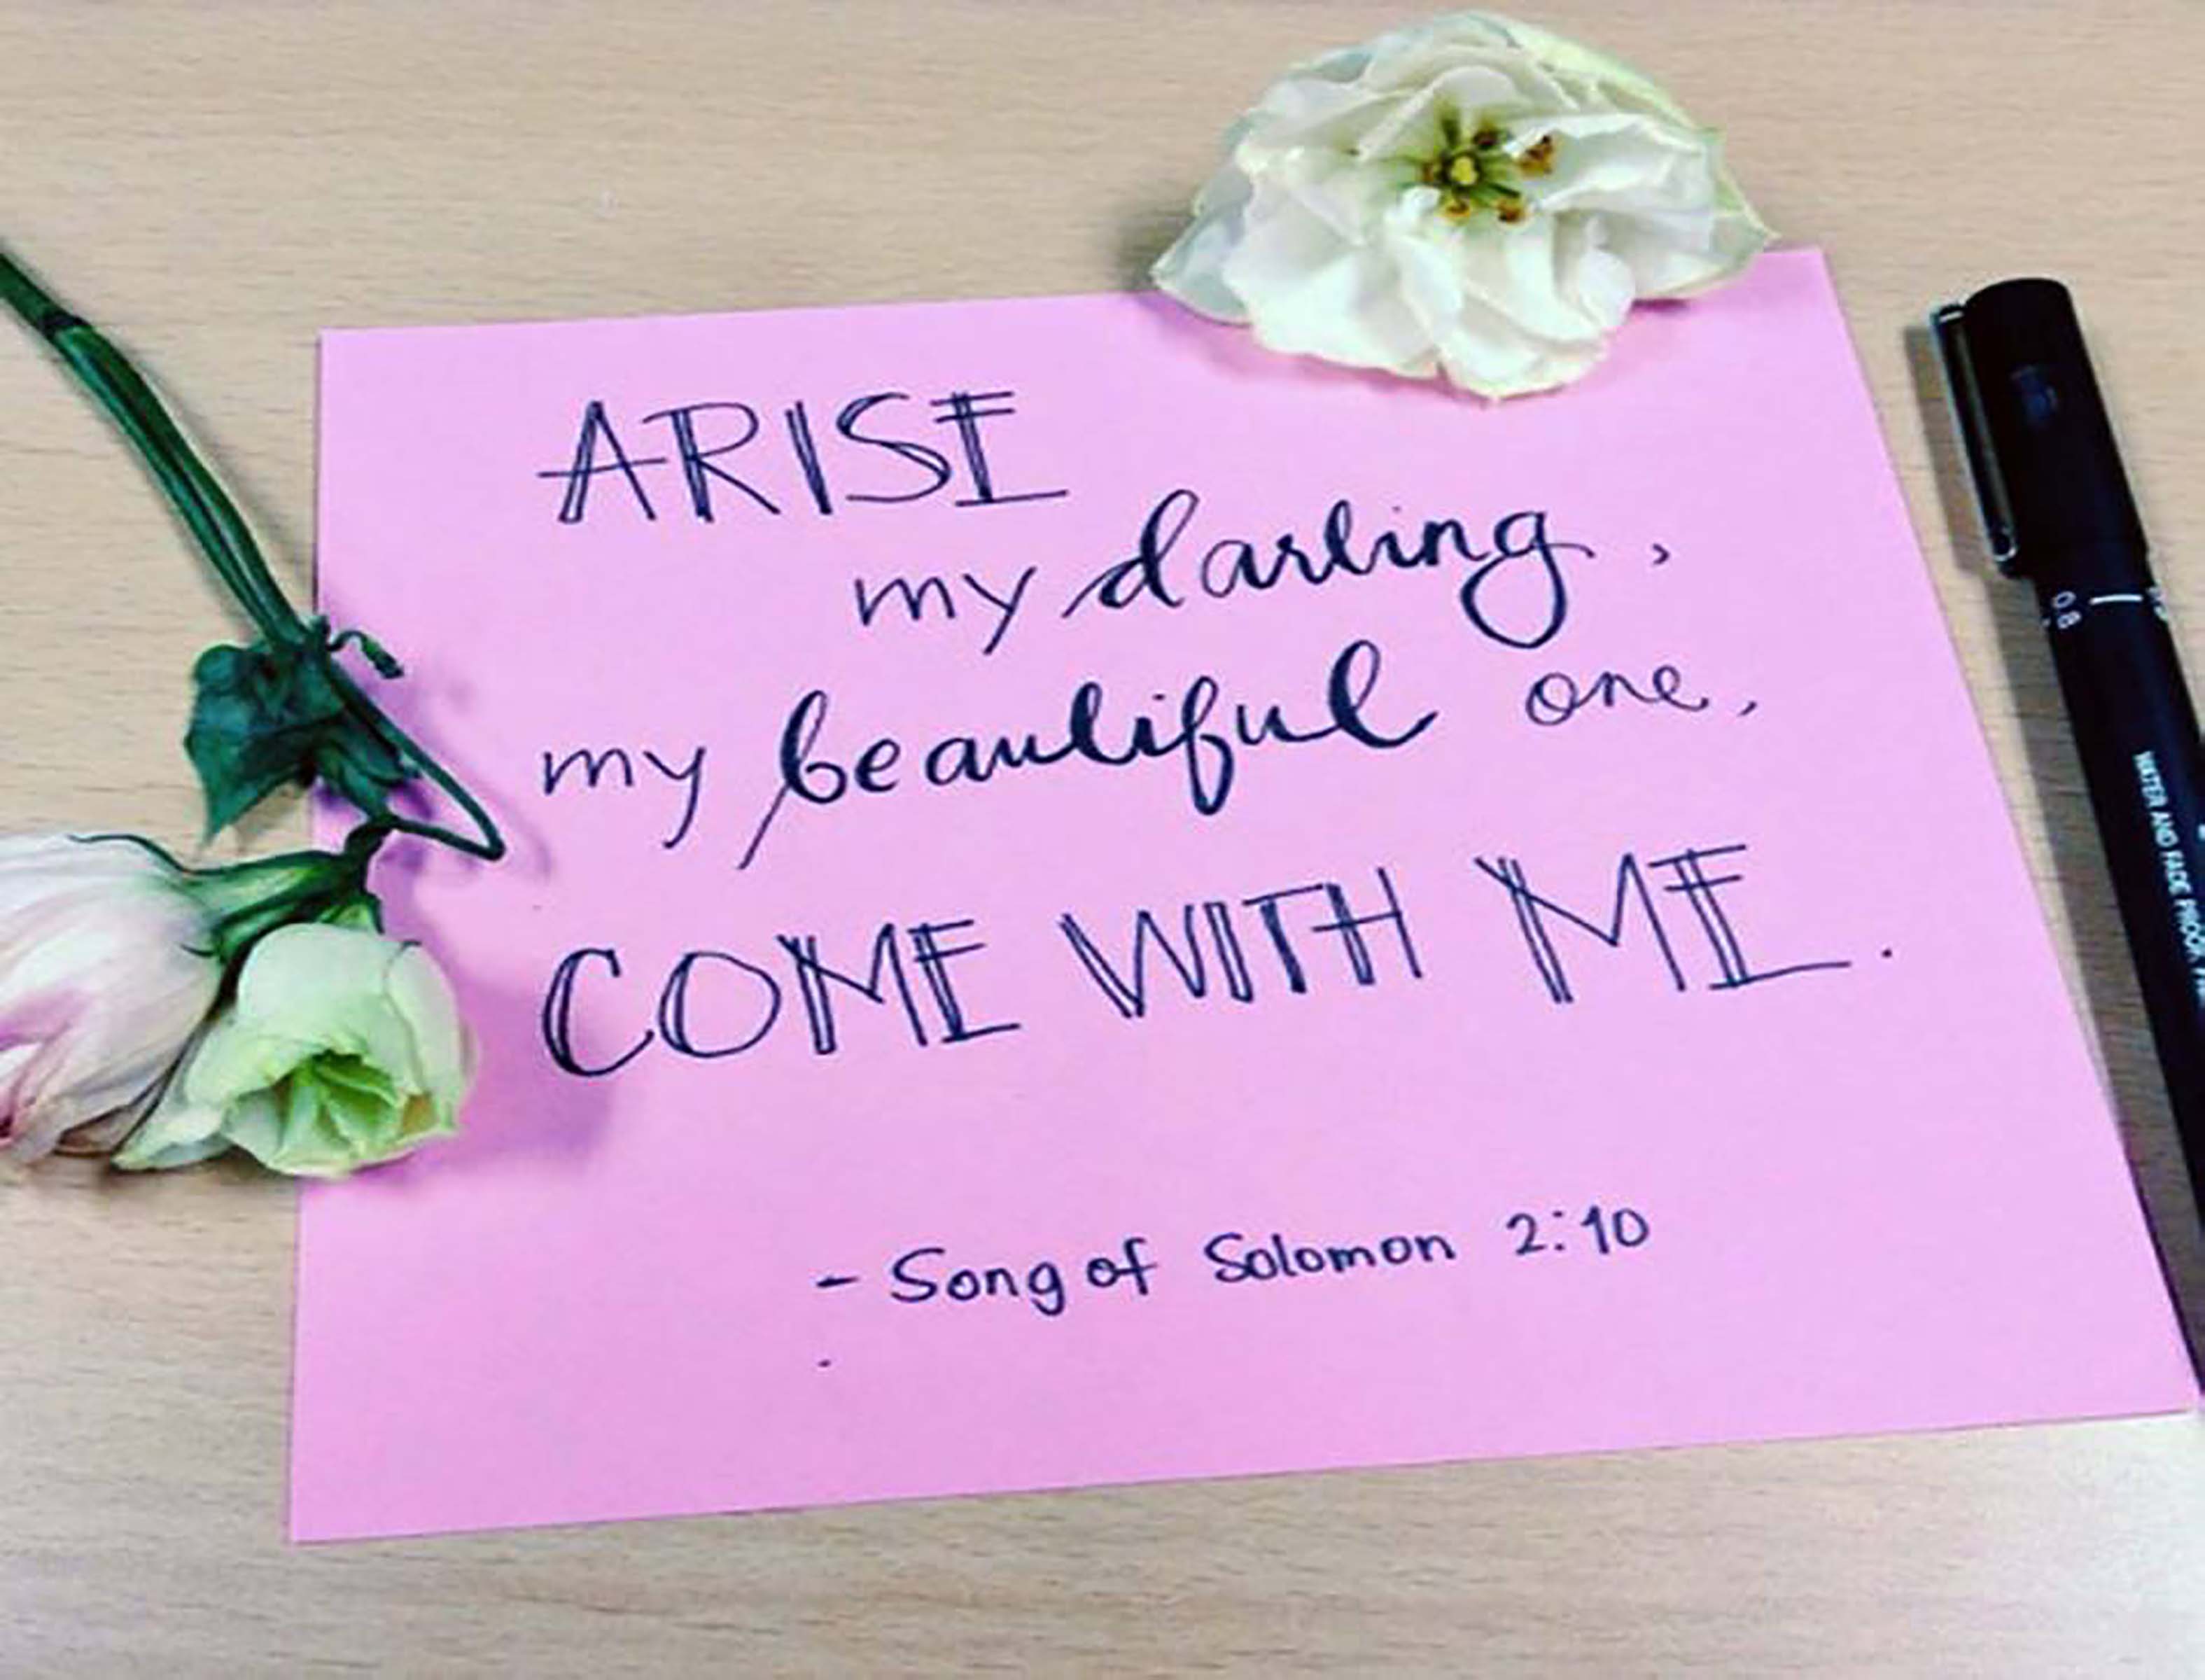 ARISE
my darling,
my beautiful one,
COME WITH ME.
- Song of Solomon 2:10
0.8
WATER AND FADE PROOF